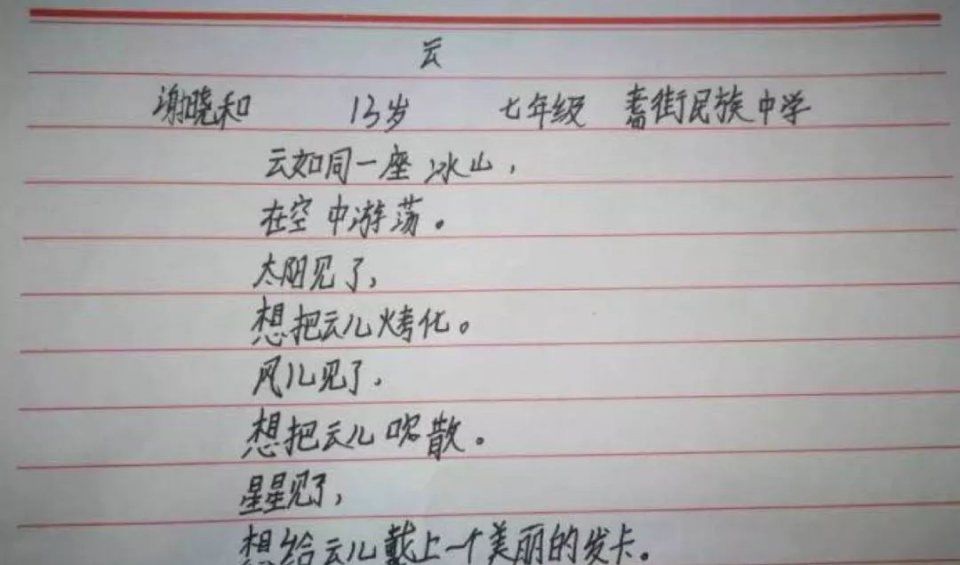 云
谢晓和 13岁 七年级 耆街民族中学
云如同一座冰山，
在空中游荡。
太阳见了，
想把云儿烤化。
风儿见了，
想把云儿吹散。
星星见了，
想给云儿戴上一个美丽的发卡。